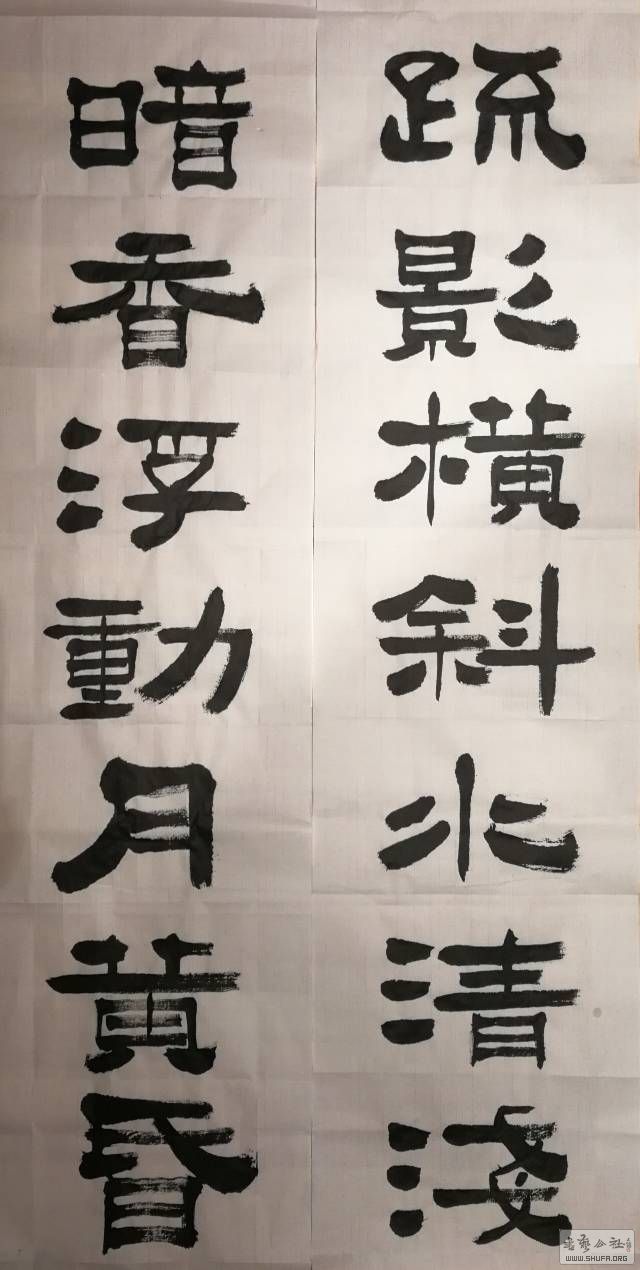 疏影橫斜水清淺
暗香浮動月黃昏
书艺公社
WWW.SHUFA.ORG